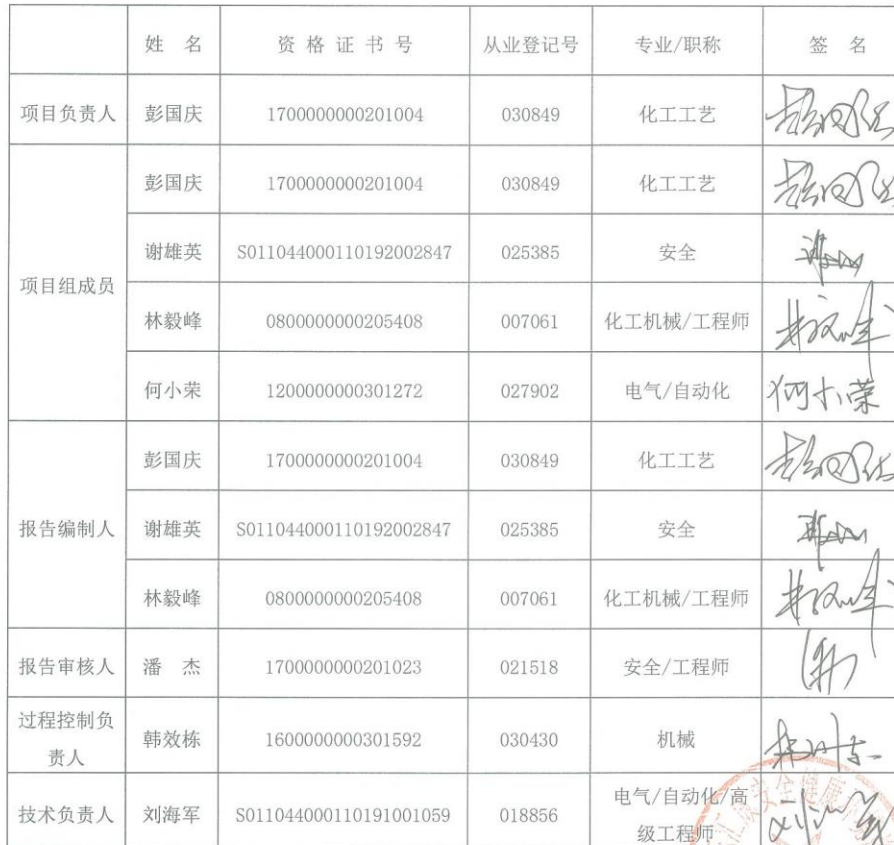 姓 名 资 格 证 书 号 从业登记号 专业/职称 签 名
项目负责人 彭国庆 1700000000201004 030849 化工工艺 彭国庆
项目组成员 彭国庆 1700000000201004 030849 化工工艺 彭国庆
谢雄英 S011044000110192002847 025385 安全
林毅峰 0800000000205408 007061 化工机械/工程师 林毅峰
何小荣 1200000000301272 027902 电气/自动化 何小荣
报告编制人 彭国庆 1700000000201004 030849 化工工艺 彭国庆
谢雄英 S011044000110192002847 025385 安全
林毅峰 0800000000205408 007061 化工机械/工程师 林毅峰
报告审核人 潘 杰 1700000000201023 021518 安全/工程师
过程控制负
责人 韩效栋 1600000000301592 030430 机械
技术负责人 刘海军 S011044000110191001059 018856 电气/自动化/高
级工程师 刘海军